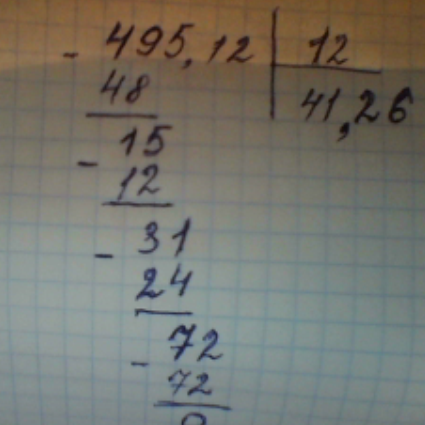 - 495,12 | 12
48 41,26
- 15
12
- 31
24
- 72
72
0